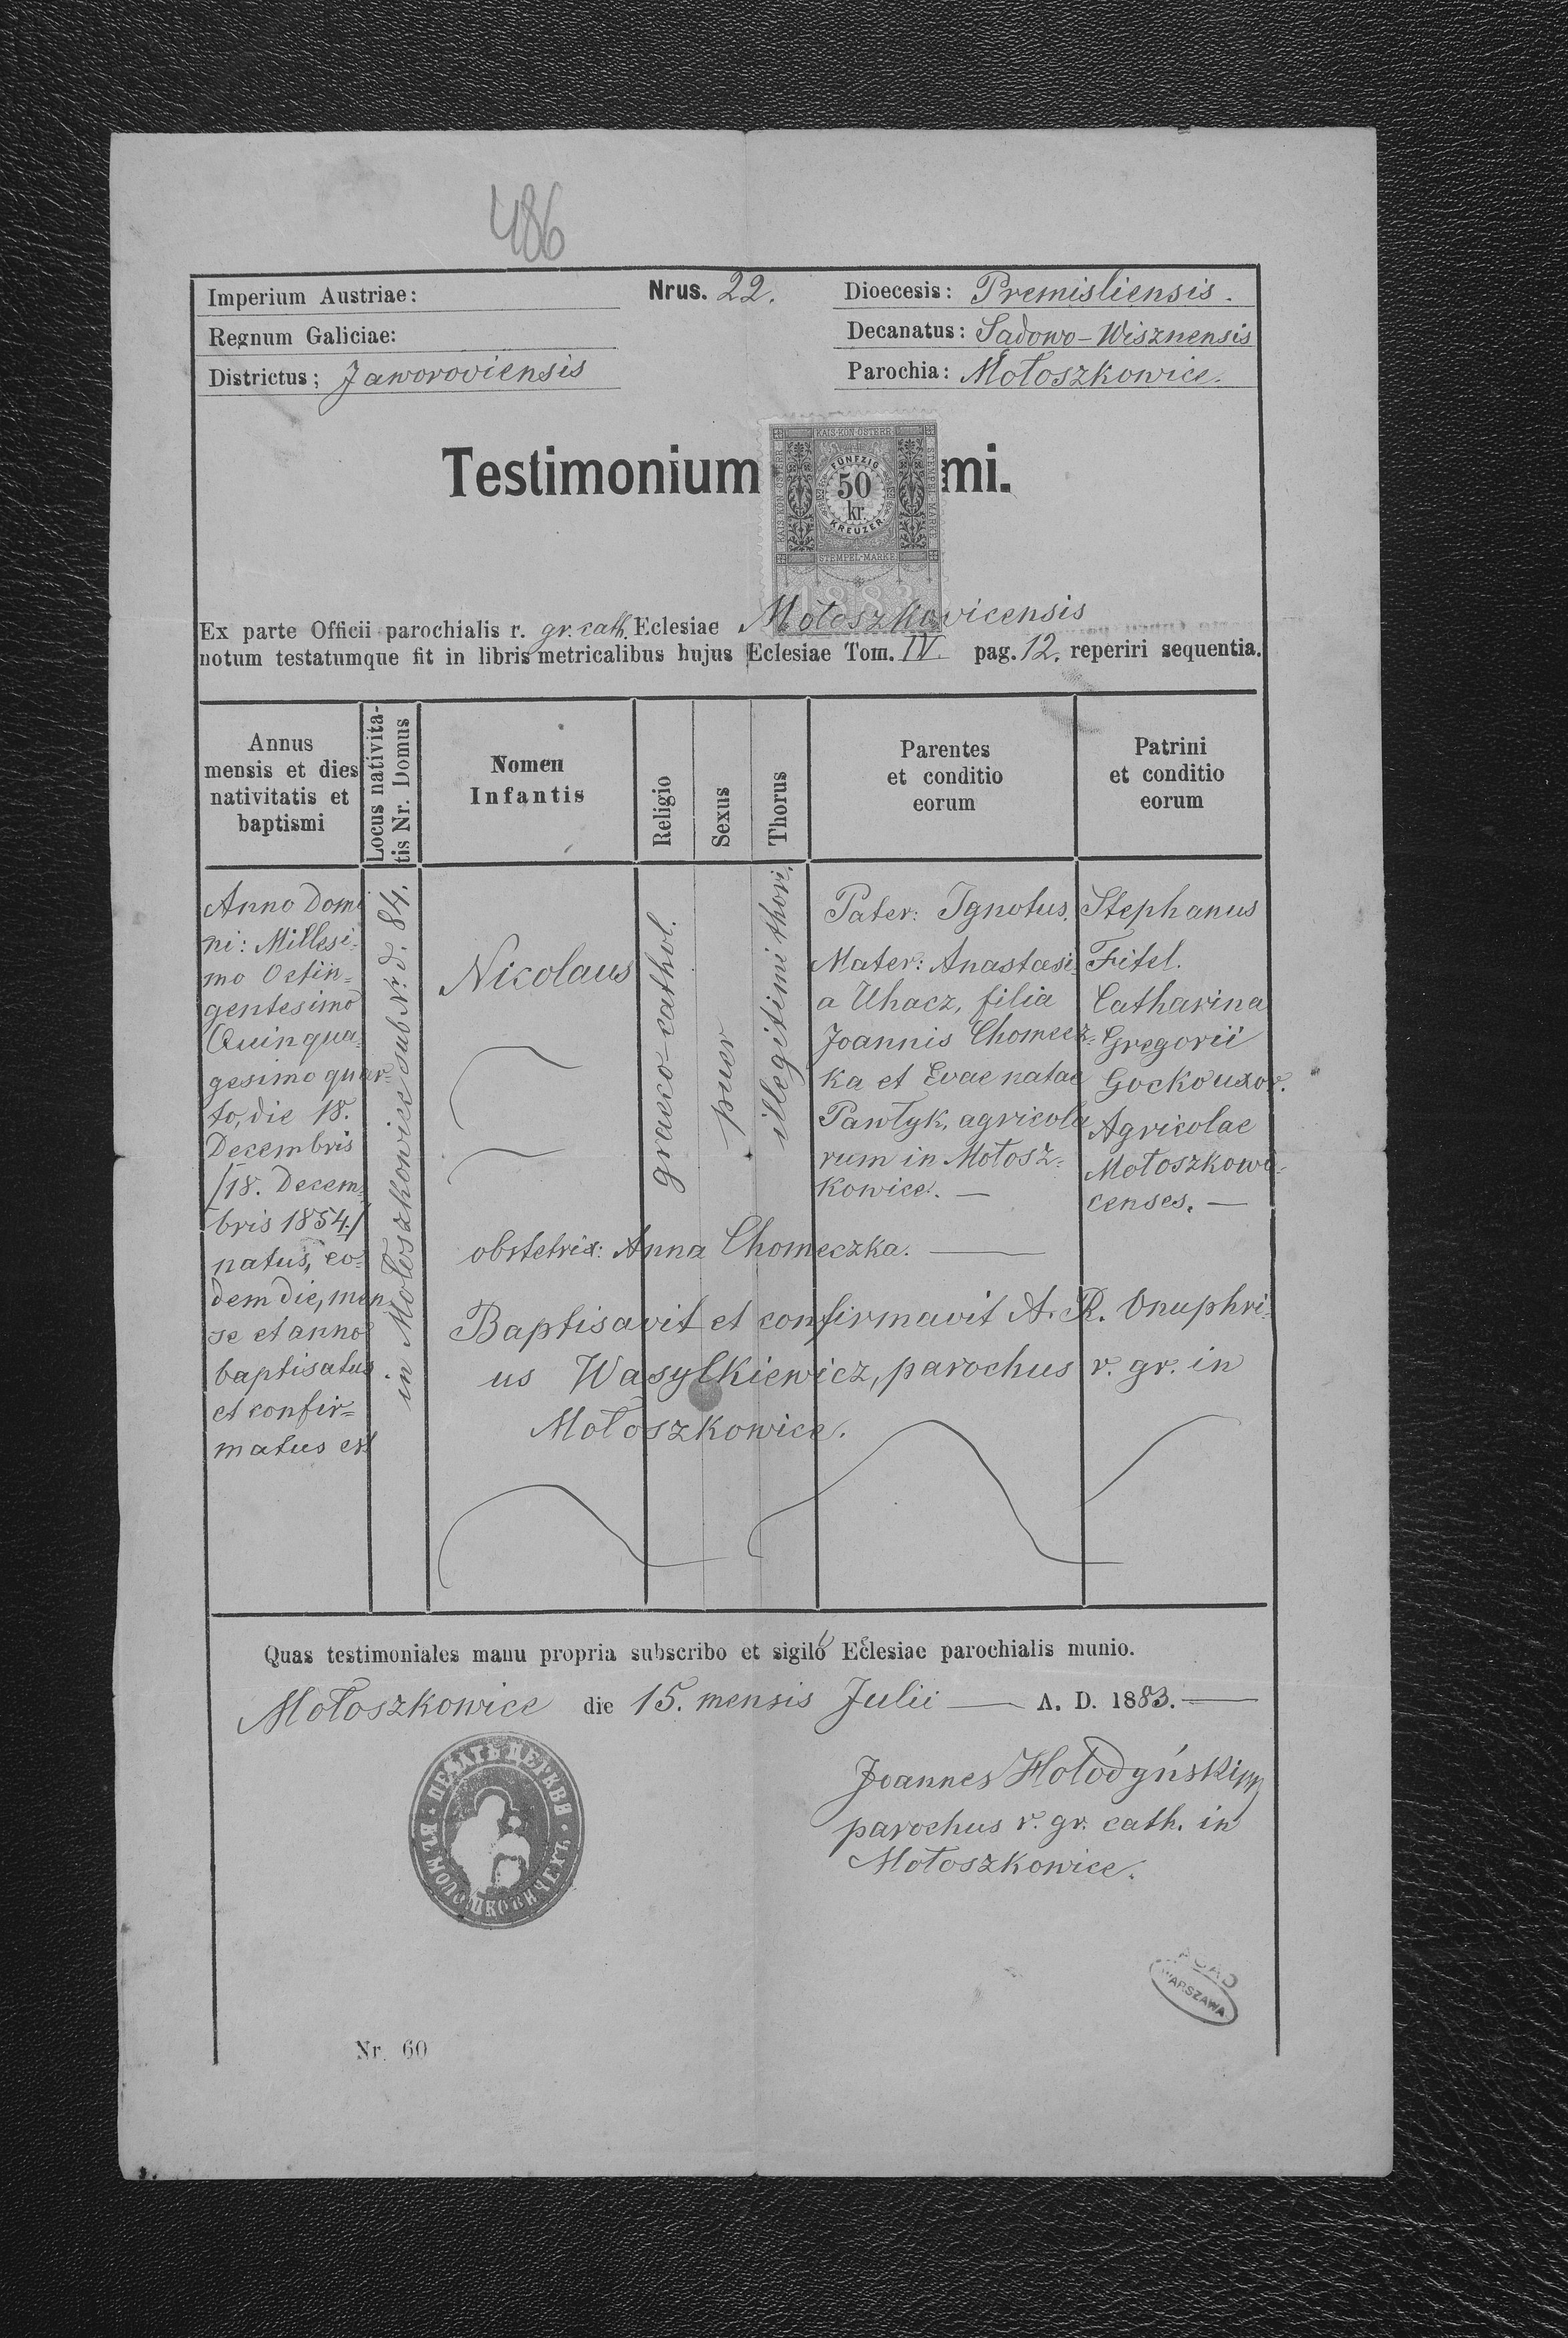 486
Imperium Austriae:
Nrus. 22.
Dioecesis: Premisliensis.
Regnum Galiciae:
Decanatus: Sadowo-Wisznensis
Districtus; Jaworoviensis
Parochia: Mołoszkowice.
Testimonium mi.
KAIS·KÖN·ÖSTERR
FÜNFZIG
50
kr.
KREUZER
STEMPEL-MARKE
1883
Ex parte Officii parochialis r. gr. cath. Eclesiae Mołoszkovicensis
notum testatumque fit in libris metricalibus hujus Eclesiae Tom. IV. pag. 12. reperiri sequentia.
Annus
mensis et dies
nativitatis et
baptismi
Locus nativita-
tis Nr. Domus
Nomen
Infantis
Religio
Sexus
Thorus
Parentes
et conditio
eorum
Patrini
et conditio
eorum
Anno Domi
ni: Millesi=
mo Octin=
gentesimo
Quinqua=
gesimo quar=
to, die 18.
Decembris
/18. Decem=
bris 1854./
natus, eo=
dem die, men
se et anno
baptisatus
et confir=
matus est
in Mołoszkowice sub Nr. d. 84.
Nicolaus
graeco-cathol.
puer
illegitimi thori.
Pater: Ignotus.
Mater: Anastasi=
a Uhacz, filia
Joannis Chomecz=
ka et Evae natae
Pawłyk, agricola
rum in Mołosz=
kowice. —
Stephanus
Fitel.
Catharina
Gregorii
Gocko uxor.
Agricolae
Mołoszkowi=
censes. —
obstetrix: Anna Chomeczka. —
Baptisavit et confirmavit A. R. Onuphri=
us Wasylkiewicz, parochus r. gr. in
Mołoszkowice.
Quas testimoniales manu propria subscribo et sigilo Eclesiae parochialis munio.
Mołoszkowice die 15. mensis Julii — A. D. 1883. —
Joannes Hołodyński mp
parochus r. gr. cath. in
Mołoszkowice.
ПЕЧАТЬ ЦЕРКВИ · ВЪ МОЛОШКОВИЧЕХЪ ·
AGAD
WARSZAWA
Nr. 60